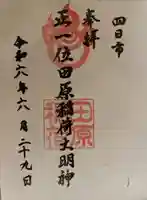 四日市
奉拝
正一位田原稲荷大明神
令和六年六月二十九日
田原
稲荷